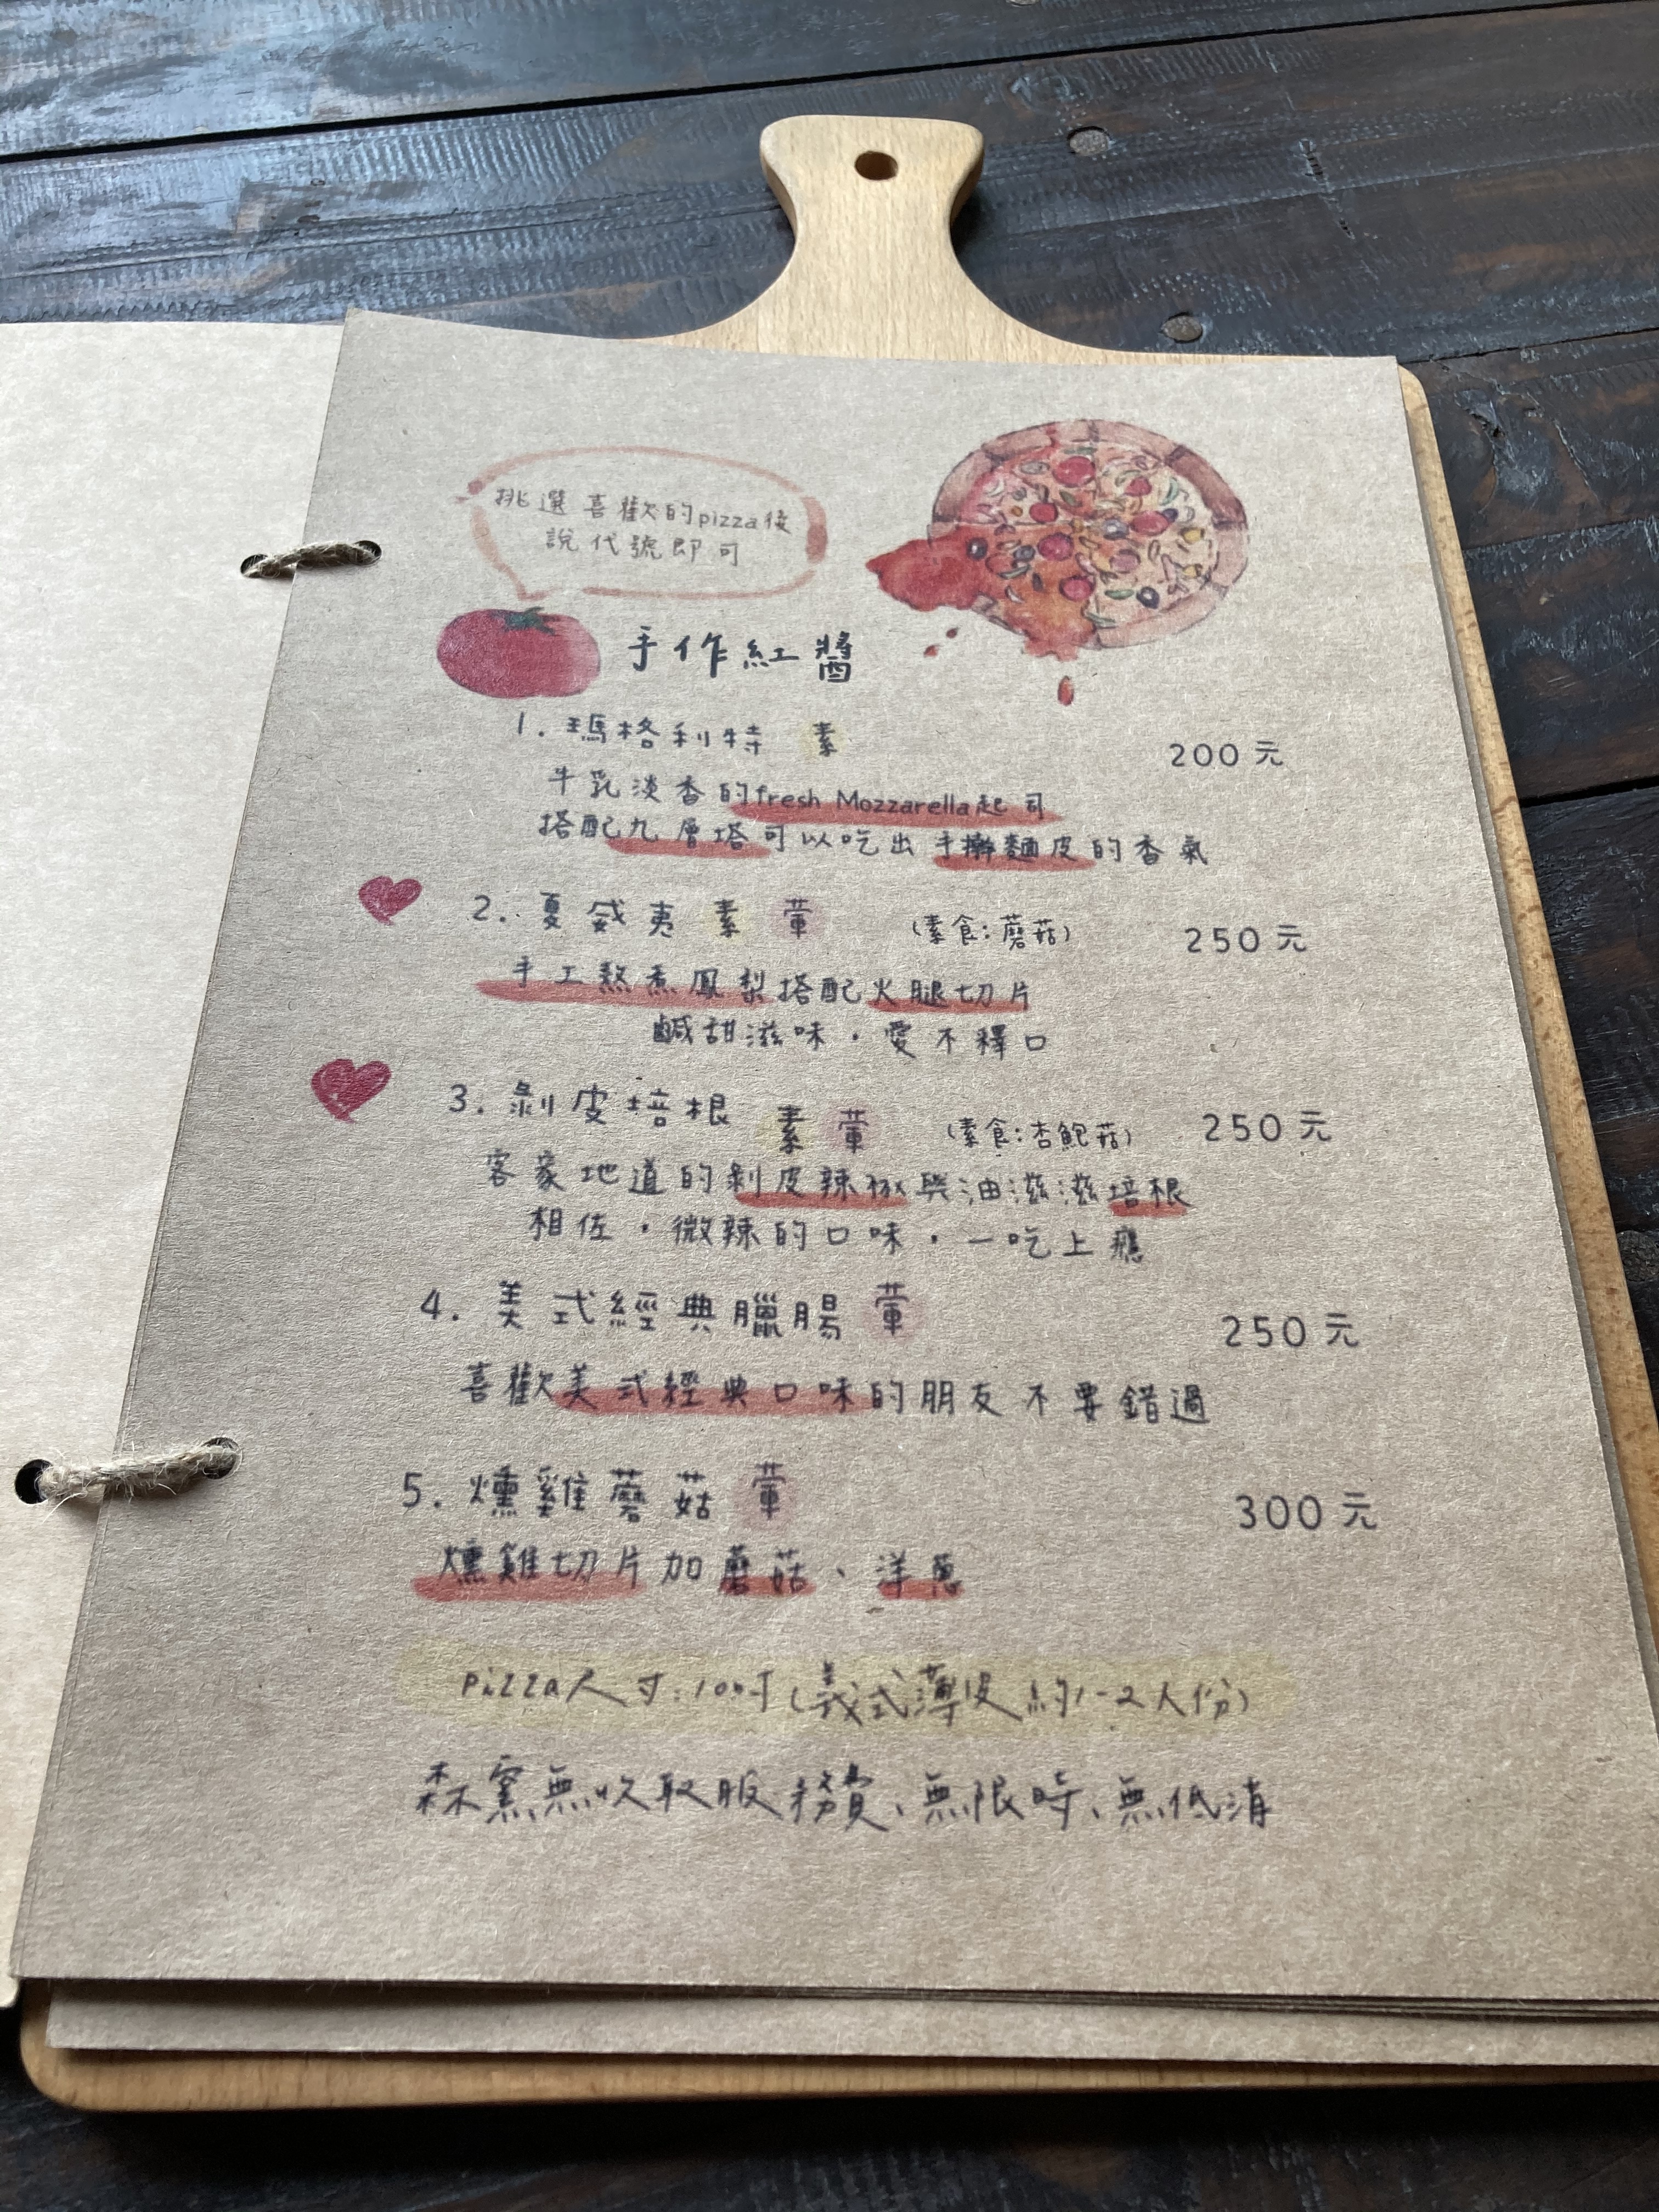 挑選喜歡的pizza後
說代號即可
手作紅醬
1. 瑪格利特 素 200元
牛乳淡香的fresh Mozzarella起司
搭配九層塔可以吃出手擀麵皮的香氣
2. 夏威夷 素 葷 (素食:蘑菇) 250元
手工熬煮鳳梨搭配火腿切片
鹹甜滋味·愛不釋口
3. 剝皮培根 素 葷 (素食:杏鮑菇) 250元
客家地道的剝皮辣椒與油滋滋培根
相佐·微辣的口味·一吃上癮
4. 美式經典臘腸 葷 250元
喜歡美式經典口味的朋友不要錯過
5. 燻雞蘑菇 葷 300元
燻雞切片加蘑菇、洋蔥
pizza尺寸:10吋(義式薄皮約1-2人份)
森窯無收取服務費、無限時、無低消